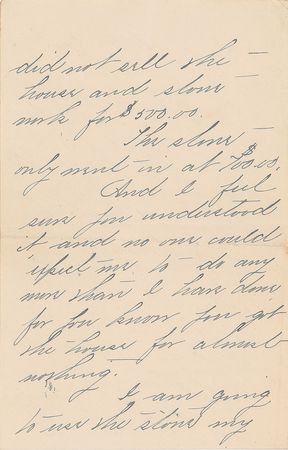 did not sell the —
house and stone —
work for $500.00.
The stone —
only went in at $700.00.
And I feel
sure you understood
it and no one could
expect me to do any
more than I have done
for you know you got
the house for almost
nothing.
I am going
to use the stone my